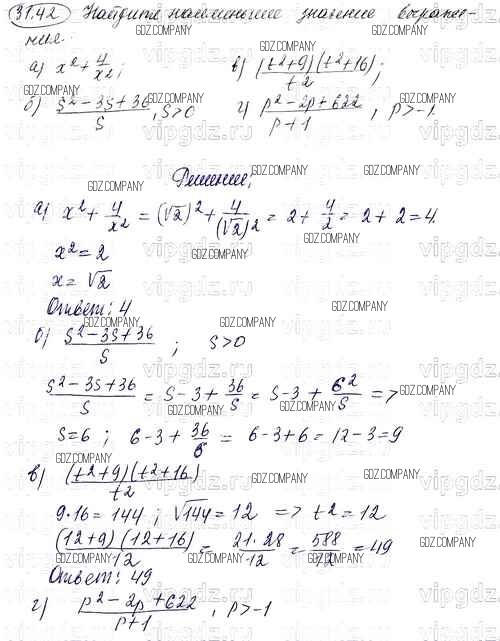 31.42 Найдите наименьшее значение выражения.
а) x² + 4/x²; в) (t²+9)(t²+16)/t²;
б) s²-3s+36/s, s>0 г) p²-2p+622/p+1, p>-1.
Решение;
а) x² + 4/x² = (√2)² + 4/(√2)² = 2 + 4/2 = 2+2=4.
x² = 2
x = √2
Ответ: 4
б) s²-3s+36/s ; s>0
s²-3s+36/s = s-3+36/s = s-3+6²/s =>
s=6 ; 6-3+36/6 = 6-3+6=12-3=9
в) (t²+9)(t²+16)/t²
9·16=144 ; √144=12 => t²=12
(12+9)(12+16)/12 = 21·28/12 = 588/12 = 49
Ответ: 49
г) p²-2p+622/p+1, p>-1
GDZ.COMPANY
vipgdz.ru